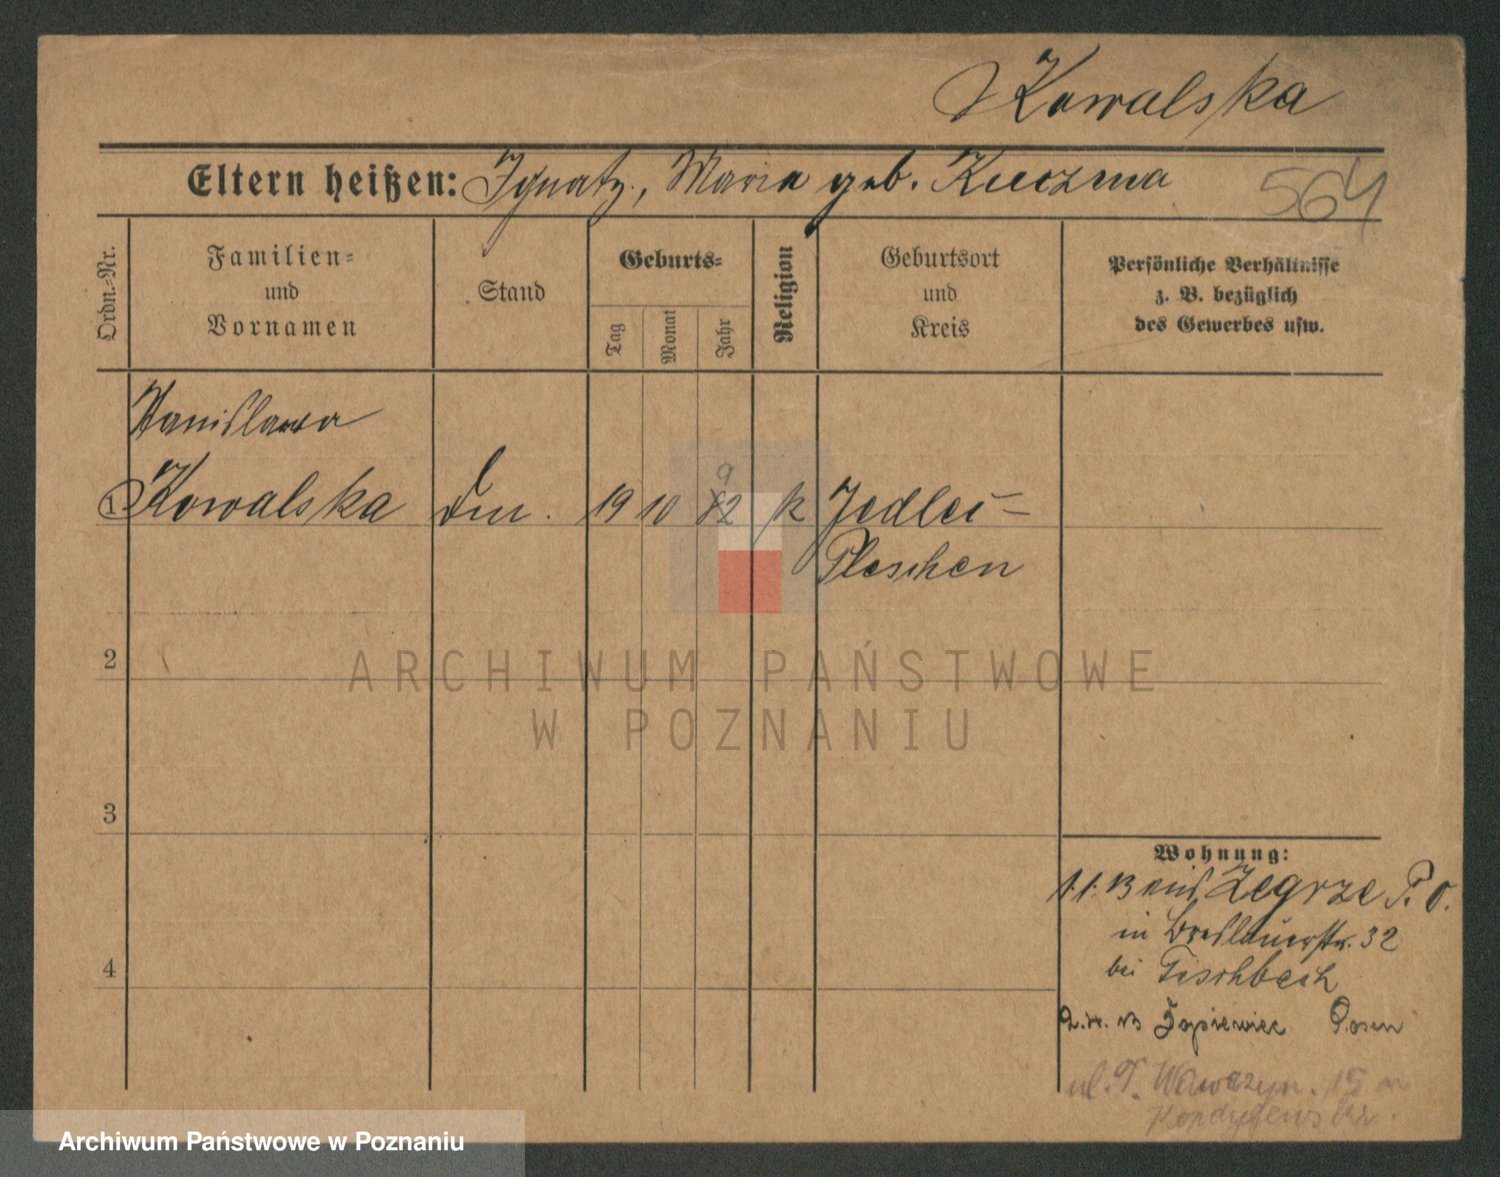 Kowalska
Eltern heißen: Ignatz, Maria geb. Kuczma
564
Ordn.-Nr.
Familien-
und
Vornamen
Stand
Geburts-
Tag
Monat
Jahr
Religion
Geburtsort
und
Kreis
Persönliche Verhältnisse
z. B. bezüglich
des Gewerbes usw.
Stanislawa
1 Kowalska 19 10 82 k Jedlec-
9
Pleschen
ARCHIWUM PAŃSTWOWE
W POZNANIU
2
3
4
Wohnung:
1.1.13 aus Zegrze P. O.
in Breslauerstr. 32
bei Fischbach
Posen
ul. 15
Archiwum Państwowe w Poznaniu